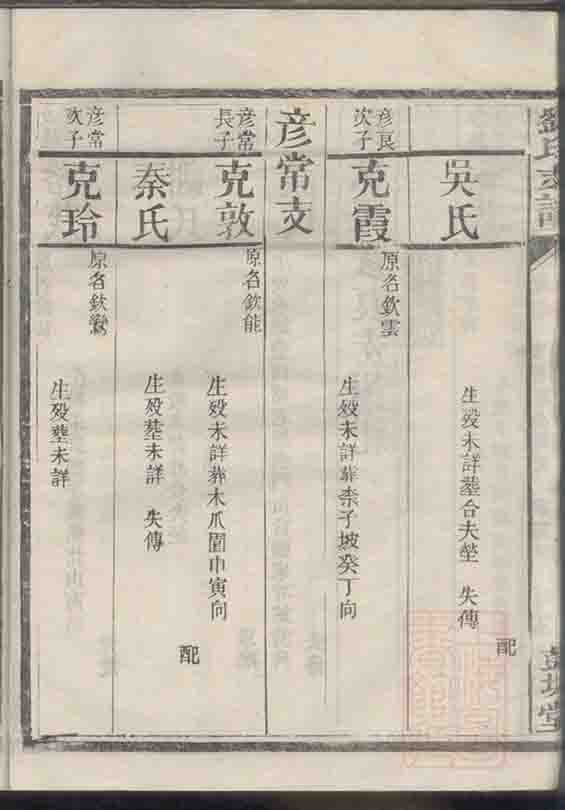 劉氏支譜
彭城堂
配
吳氏
生歿未詳塟合夫塋 失傳
彥良
次子
克霞
原名欽雲
生歿未詳葬柰子坡癸丁向
彥常支
彥常
長子
克敦
原名欽能
生歿未詳葬木爪園巾寅向
配
秦氏
生歿塟未詳 失傳
彥常
次子
克玲
原名欽鸞
生歿塟未詳